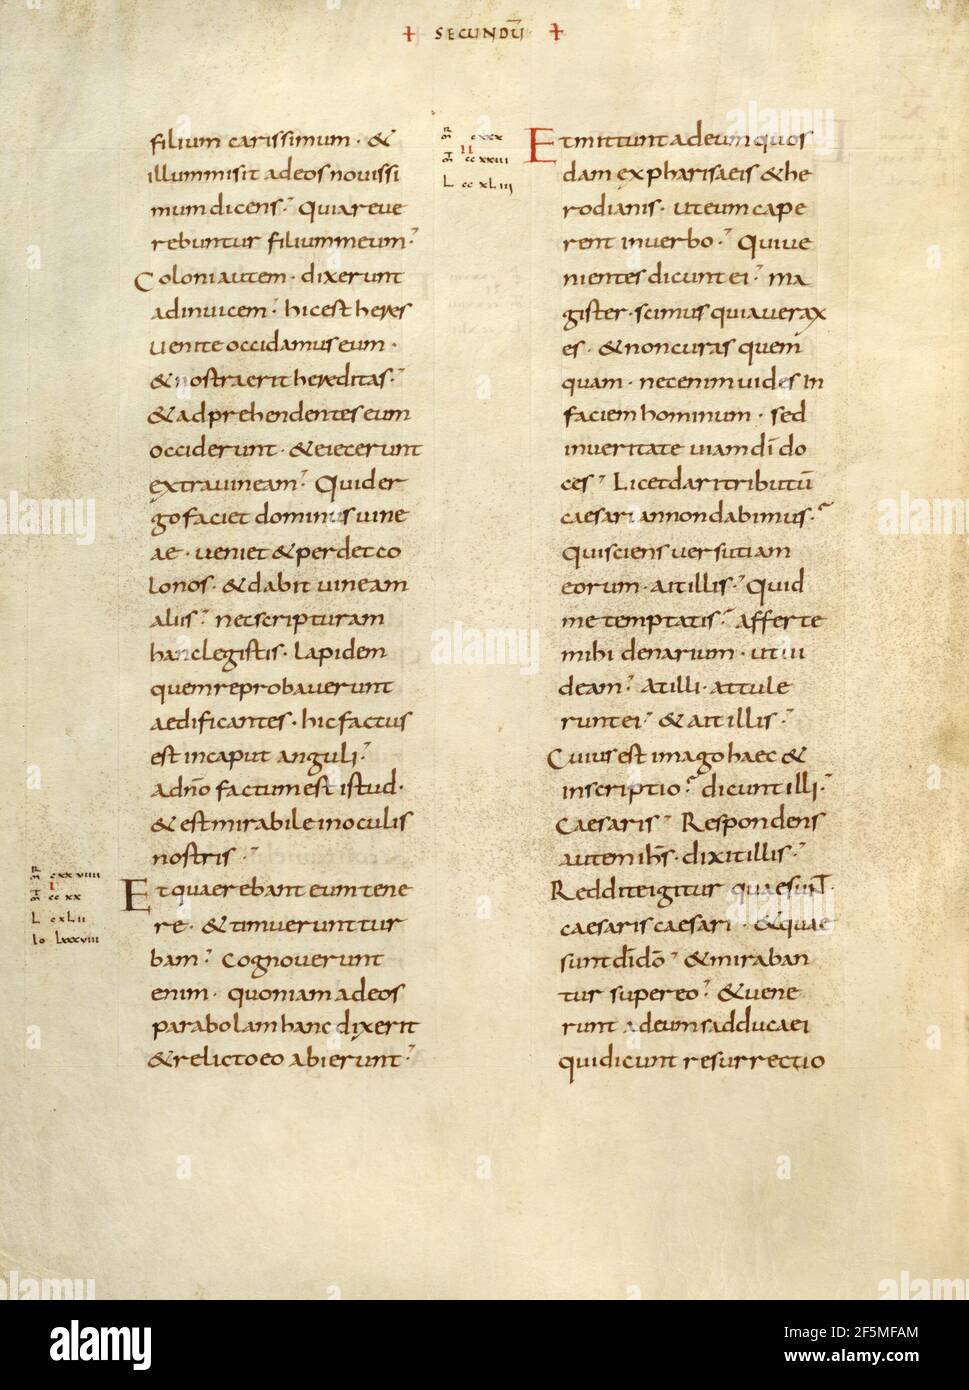 + SECUNDŪ +
filium carissimum · &
illum misit ad eos novissi
mum dicens · Quia reve
rebuntur filium meum ·
Coloni autem · dixerunt
ad invicem · hic est heres
venite occidamus eum ·
& nostra erit hereditas ·
& adprehendentes eum
occiderunt · & eiecerunt
extra vineam · Quid er
go faciet dominus vine
ae · veniet & perdet co
lonos · & dabit vineam
aliis · nec scripturam
hanc legistis · Lapidem
quem reprobaverunt
aedificantes · hic factus
est in caput anguli ·
A dn̄o factum est istud ·
& est mirabile in oculis
nostris ·
cxxviiii
I
cc xx
L cxLii
Io Lxxxviii
Et quaerebant eum tene
re · & timuerunt tur
bam · Cognoverunt
enim · quoniam ad eos
parabolam hanc dixerit
& relicto eo abierunt ·
cxxx
II
ccxxiii
L ccxLiii
Et mittunt ad eum quos
dam ex pharisaeis & he
rodianis · ut eum cape
rent in verbo · Qui ve
nientes dicunt ei · ma
gister · scimus quia verax
es · & non curas quem
quam · nec enim vides in
faciem hominum · sed
in veritate viam dī do
ces · Licet dari tributū
caesari an non dabimus ·
qui sciens versutiam
eorum · ait illis · Quid
me temptatis · afferte
mihi denarium · ut vi
deam · at illi · attule
runt ei · & ait illis ·
Cuius est imago haec &
inscriptio · dicunt illi ·
Caesaris · Respondens
autem ih̄s · dixit illis ·
Reddite igitur quae sunt
caesaris caesari · & quae
sunt dī dō · & miraban
tur super eo · & vene
runt ad eum sadducaei
qui dicunt resurrectio
alamy
Image ID: 2F5MFAM
www.alamy.com